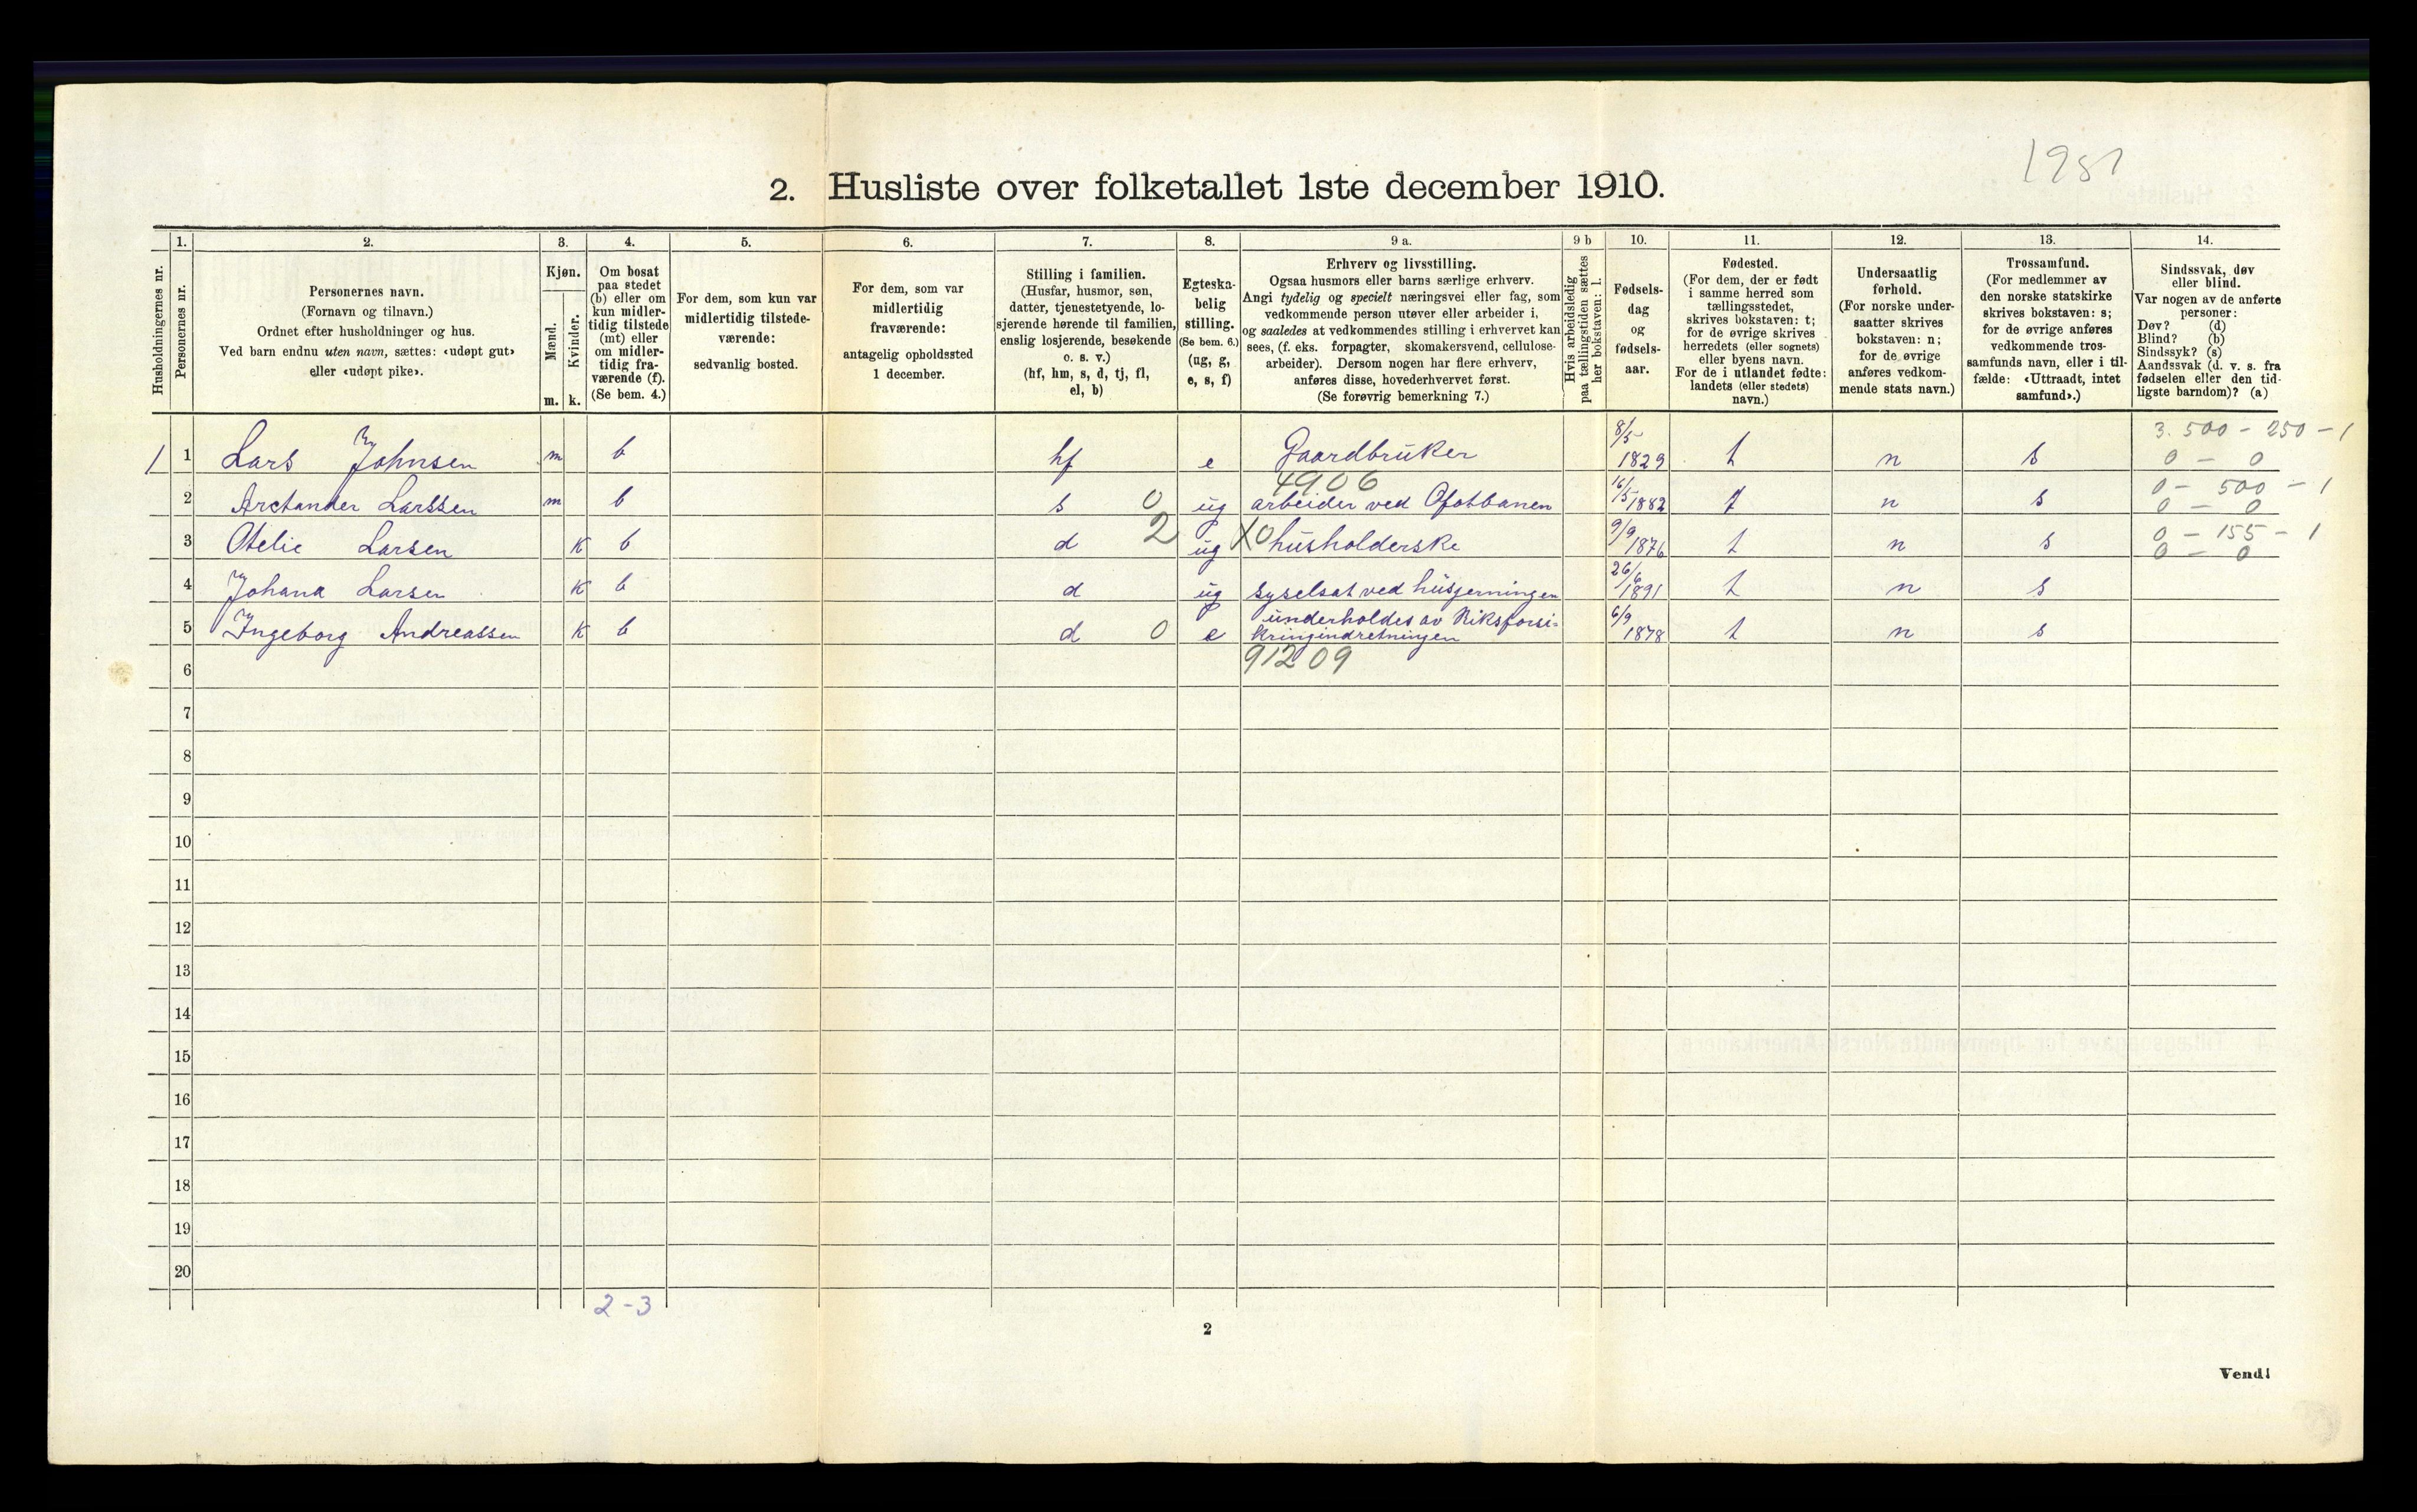 1981
2. Husliste over folketallet 1ste december 1910.
Husholdningernes nr.
1.
Personernes nr.
2.
Personernes navn.
(Fornavn og tilnavn.)
Ordnet efter husholdninger og hus.
Ved barn endnu uten navn, sættes: «udøpt gut»
eller «udøpt pike».
3.
Kjøn.
Mænd.
Kvinder.
m. k.
4.
Om bosat
paa stedet
(b) eller om
kun midler-
tidig tilstede
(mt) eller
om midler-
tidig fra-
værende (f).
(Se bem. 4.)
5.
For dem, som kun var
midlertidig tilstede-
værende:
sedvanlig bosted.
6.
For dem, som var
midlertidig
fraværende:
antagelig opholdssted
1 december.
7.
Stilling i familien.
(Husfar, husmor, søn,
datter, tjenestetyende, lo-
sjerende hørende til familien,
enslig losjerende, besøkende
o. s. v.)
(hf, hm, s, d, tj, fl,
el, b)
8.
Egteska-
belig
stilling.
(Se bem. 6.)
(ug, g,
e, s, f)
9 a.
Erhverv og livsstilling.
Ogsaa husmors eller barns særlige erhverv.
Angi tydelig og specielt næringsvei eller fag, som
vedkommende person utøver eller arbeider i,
og saaledes at vedkommendes stilling i erhvervet kan
sees, (f. eks. forpagter, skomakersvend, cellulose-
arbeider). Dersom nogen har flere erhverv,
anføres disse, hovederhvervet først.
(Se forøvrig bemerkning 7.)
9 b
Hvis arbeidsledig
paa tællingstiden sættes
her bokstaven: l.
10.
Fødsels-
dag
og
fødsels-
aar.
11.
Fødested.
(For dem, der er født
i samme herred som
tællingsstedet,
skrives bokstaven: t;
for de øvrige skrives
herredets (eller sognets)
eller byens navn.
For de i utlandet fødte:
landets (eller stedets)
navn.)
12.
Undersaatlig
forhold.
(For norske under-
saatter skrives
bokstaven: n;
for de øvrige
anføres vedkom-
mende stats navn.)
13.
Trossamfund.
(For medlemmer av
den norske statskirke
skrives bokstaven: s;
for de øvrige anføres
vedkommende tros-
samfunds navn, eller i til-
fælde: «Uttraadt, intet
samfund».)
14.
Sindssvak, døv
eller blind.
Var nogen av de anførte
personer:
Døv? (d)
Blind? (b)
Sindssyk? (s)
Aandssvak (d. v. s. fra
fødselen eller den tid-
ligste barndom)? (a)
1 1 Lars Johnsen m b hf e Gaardbruker 8/5 1829 t n s 3.500 - 250 - 1
0 - 0
4906
2 Arctander Larssen m b s 0 ug arbeider ved Ofotbanen 16/5 1882 t n s 0 - 500 - 1
0 - 0
3 Otelie Larsen k b d 2 ug X0 husholderske 9/9 1876 t n s 0 - 155 - 1
0 - 0
4 Johana Larsen k b d ug syselsat ved husgerningen 26/6 1891 t n s
5 Ingeborg Andreassen k b d 0 e underholdes av Riksforsi=
kringindretningen 6/9 1878 t n s
91209
6
7
8
9
10
11
12
13
14
15
16
17
18
19
20
2 - 3
2
Vend!